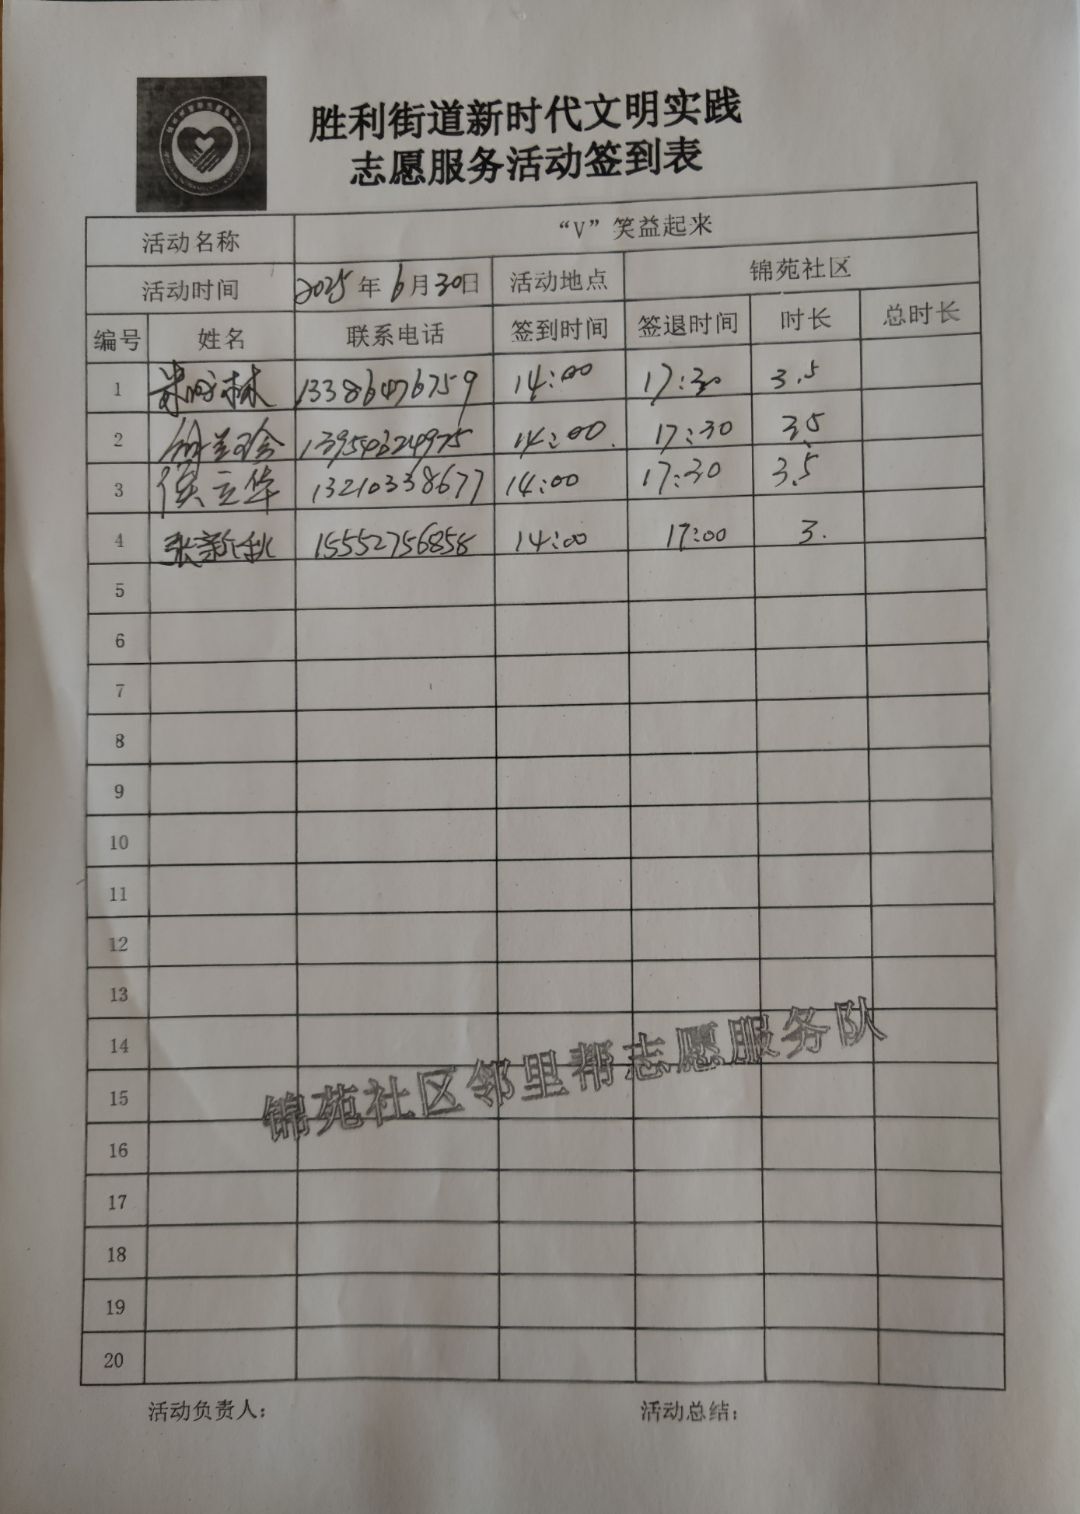 胜利街道新时代文明实践
志愿服务活动签到表
活动名称 “V”笑益起来
活动时间 2025年6月30日 活动地点 锦苑社区
编号 姓名 联系电话 签到时间 签退时间 时长 总时长
1 13386476759 14:00 17:30 3.5
2 13954624975 14:00 17:30 3.5
3 侯立华 13210338677 14:00 17:30 3.5
4 张新秋 15552756858 14:00 17:00 3.
5
6
7
8
9
10
11
12
13
14
15
锦苑社区邻里帮志愿服务队
16
17
18
19
20
活动负责人： 活动总结：